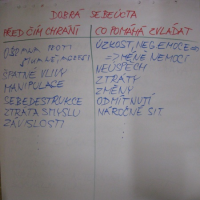 DOBRÁ SEBEÚCTA
PŘED ČÍM CHRÁNÍ
CO POMÁHÁ ZVLÁDAT
PROTI
ŠPATNÉ VLIVY
MANIPULACE
SEBEDESTRUKCE
ZTRÁTA SMYSLU
ZÁVISLOSTI
ÚZKOST, NEG. EMOCE
=> MÉNĚ NEMOCÍ
NEÚSPĚCH
ZTRÁTY
ZMĚNY
ODMÍTNUTÍ
NÁROČNÉ SIT.